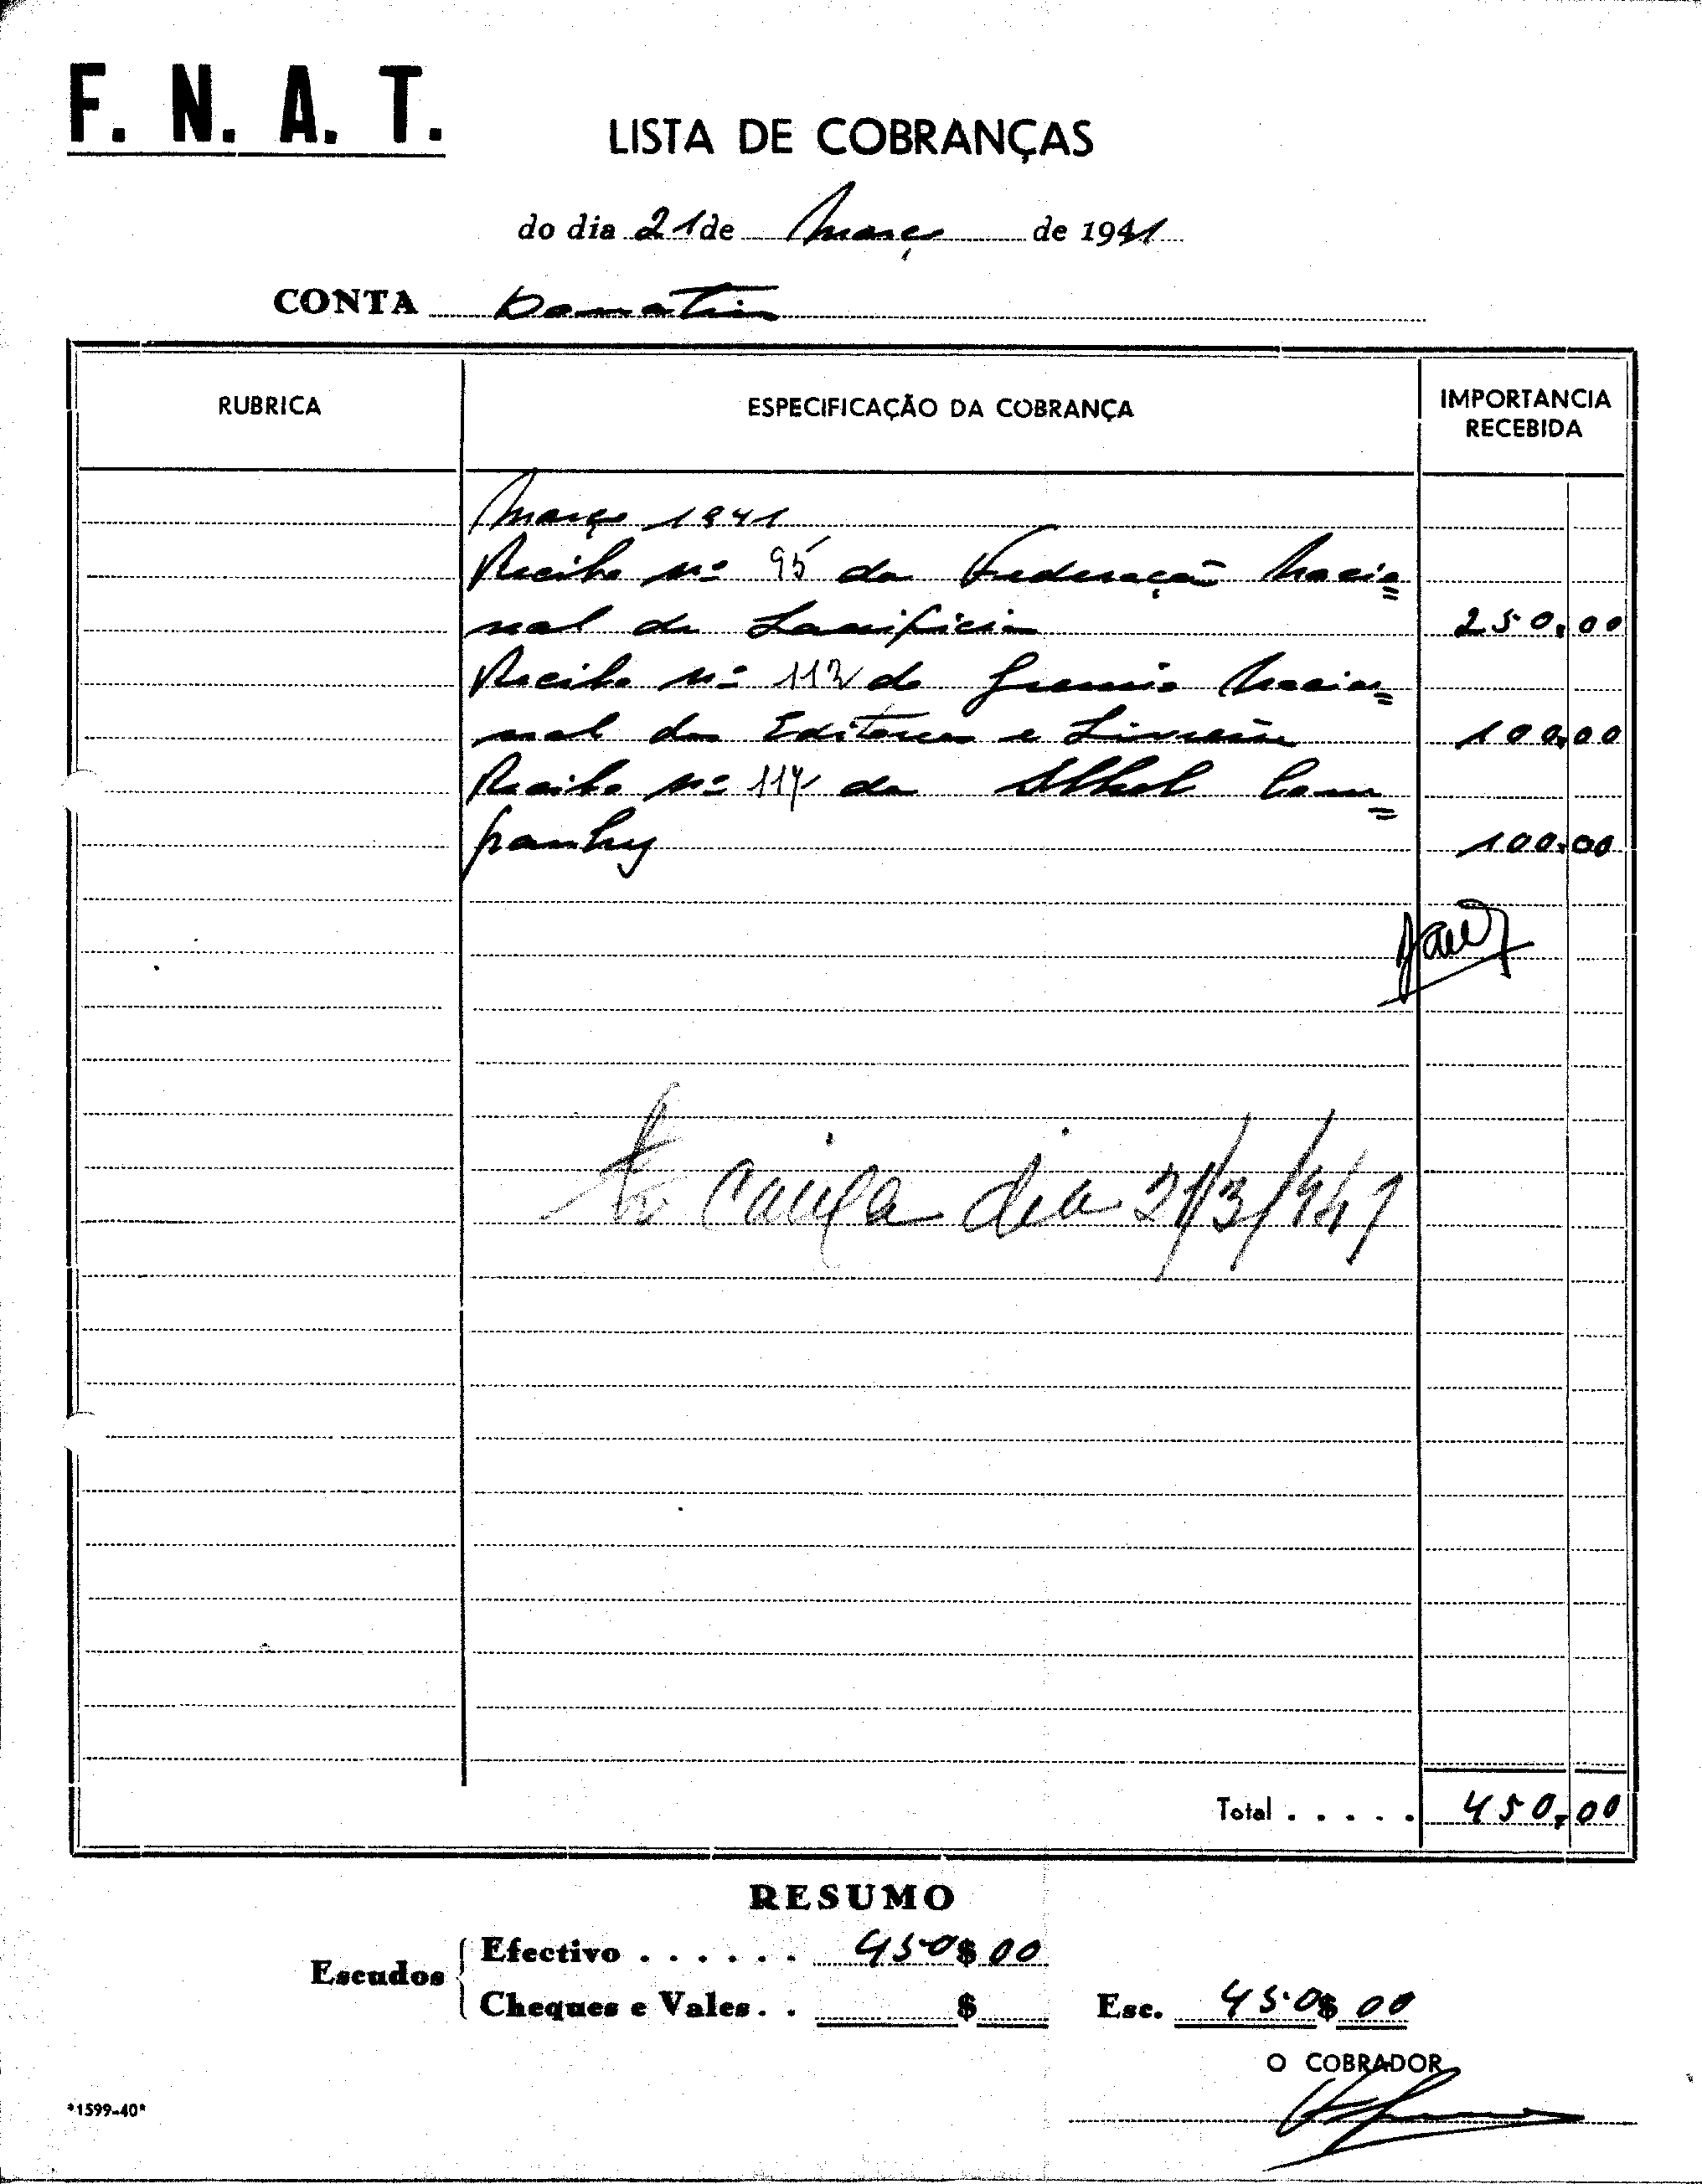 F. N. A. T.
LISTA DE COBRANÇAS
do dia 21 de Março de 1941
CONTA
RUBRICA
ESPECIFICAÇÃO DA COBRANÇA
IMPORTANCIA
RECEBIDA
Março 1941
Recibo nº 95 da Federação Nacio=
nal de Lanificios 250,00
Recibo nº 112 do Gremio Nacio=
nal dos Editores e Livreiros 100,00
Recibo nº 114 da Com=
panhy 100,00
caixa dia 21/3/941
Total . . . . . 450,00
RESUMO
Escudos
Efectivo . . . . . . 450$00
Cheques e Vales . . $
Esc. 450$00
O COBRADOR
*1599-40*